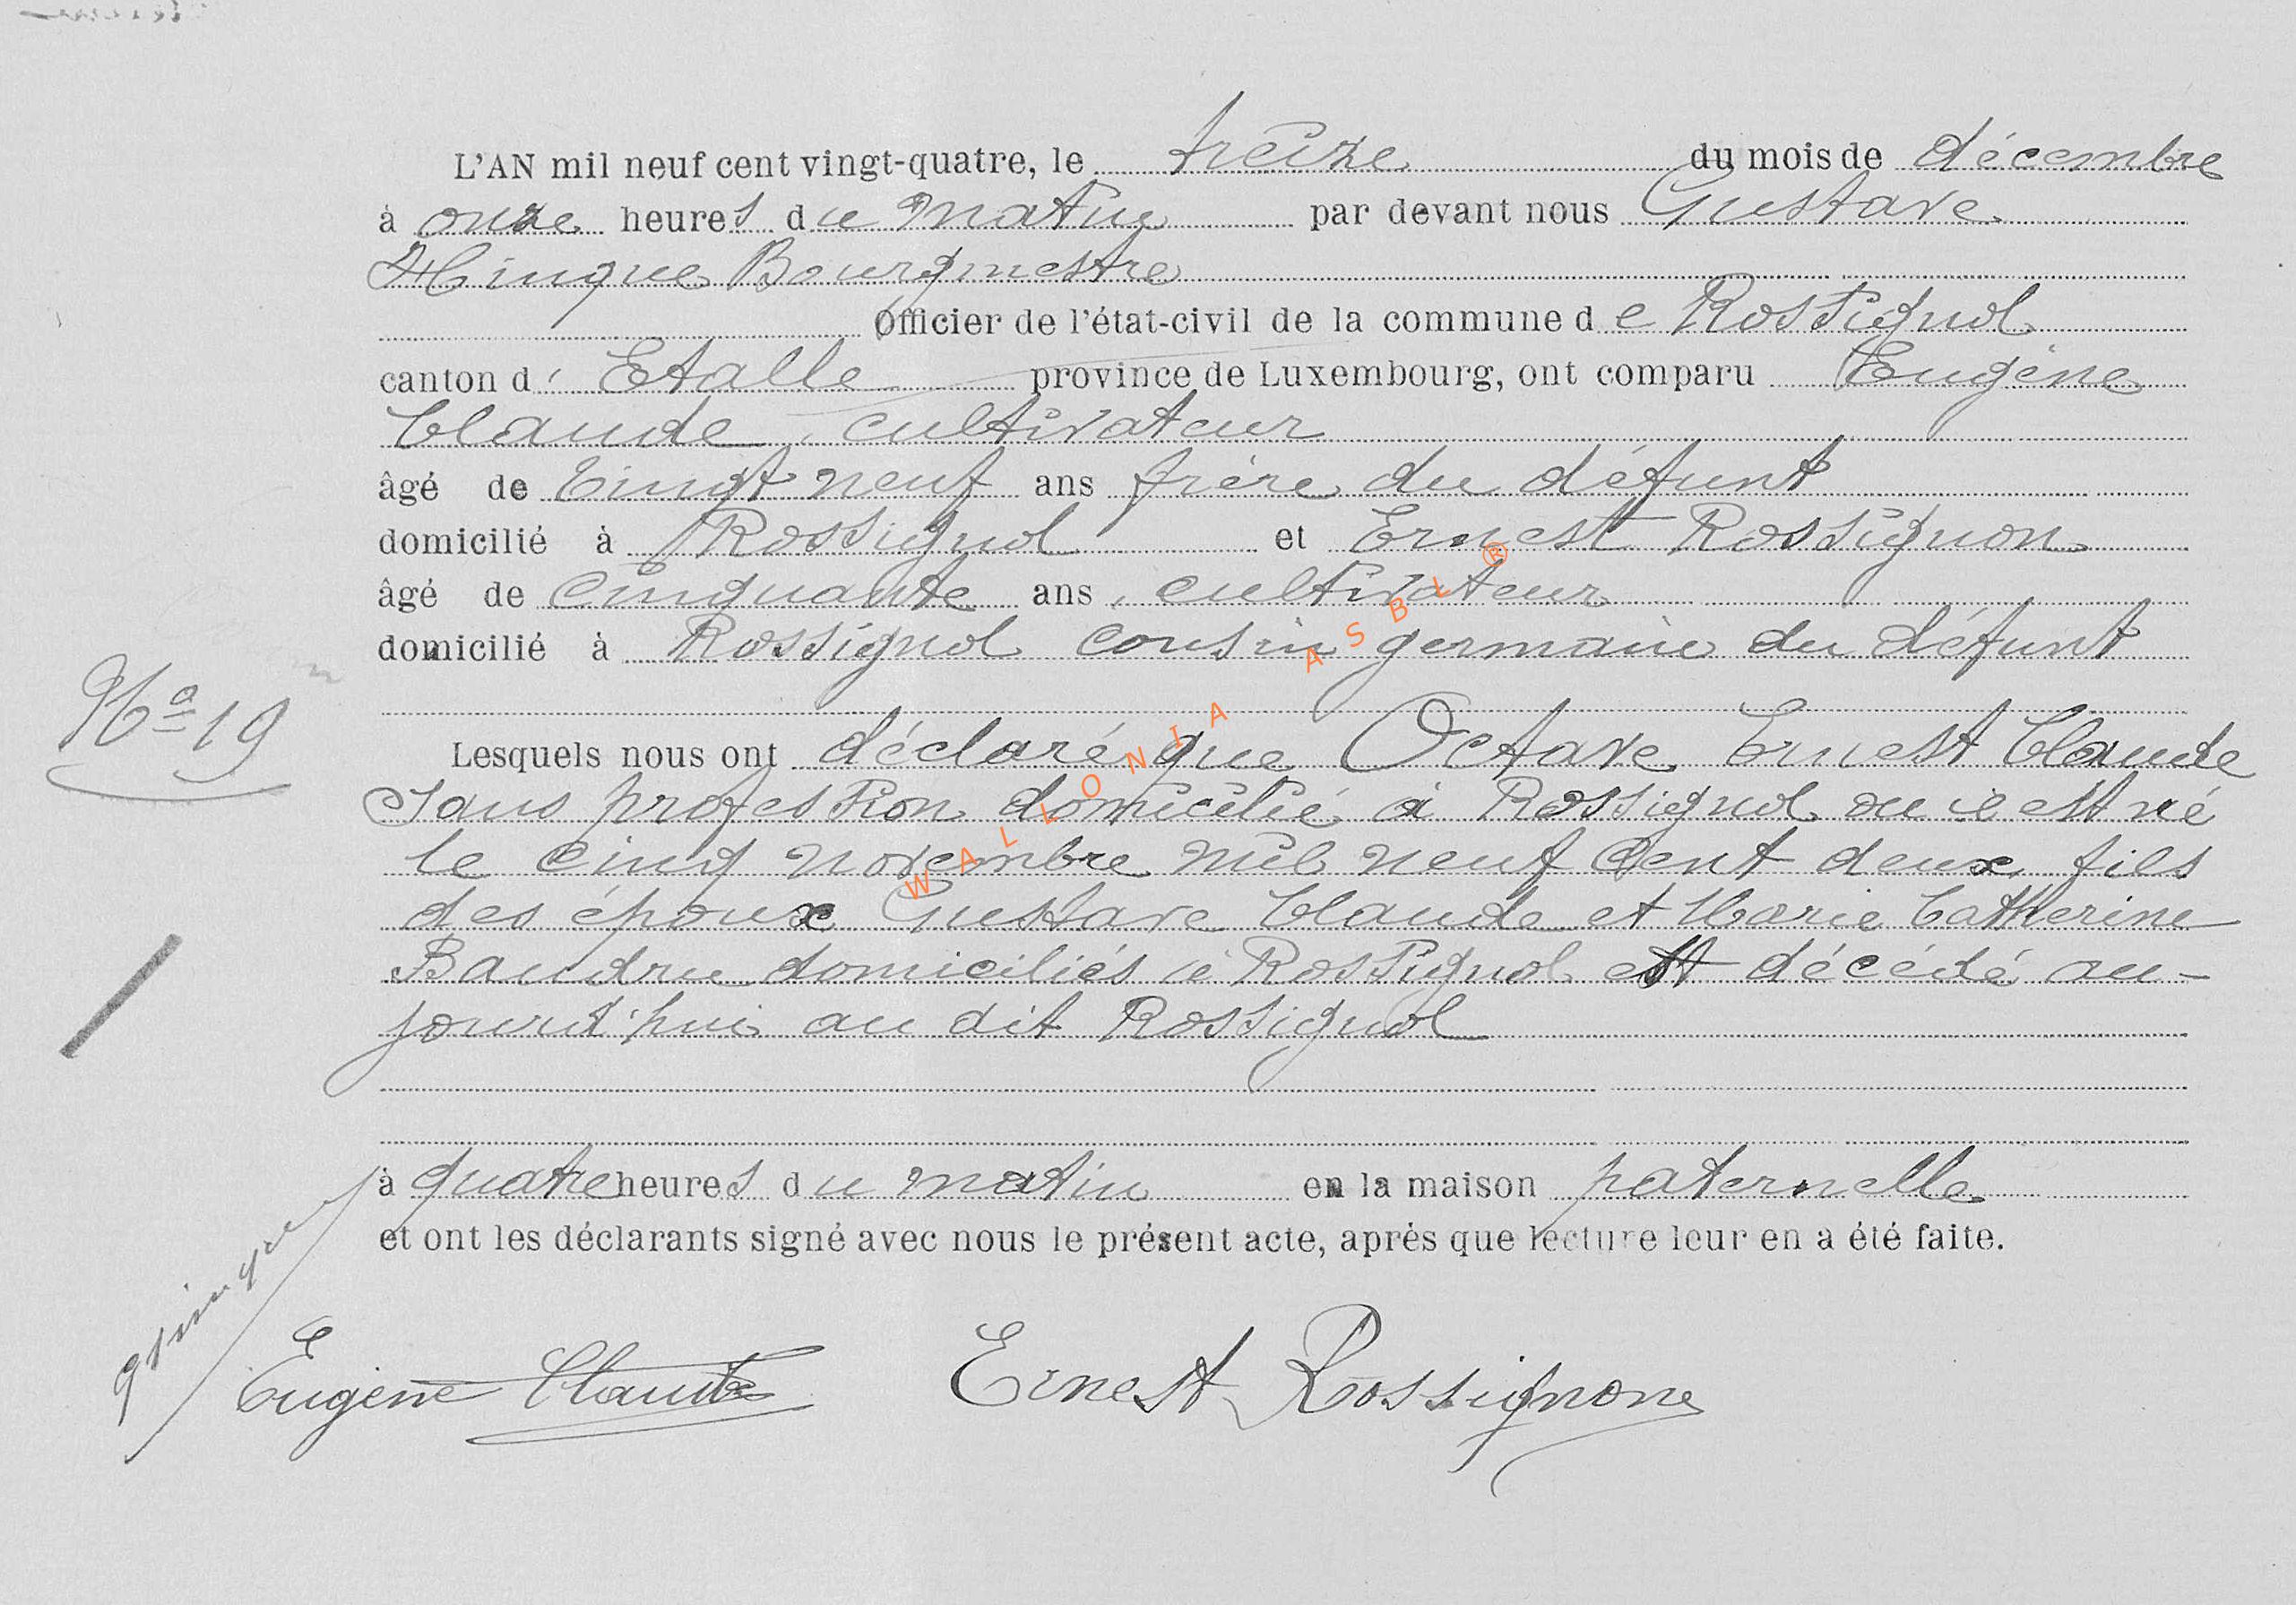 L'AN mil neuf cent vingt-quatre, le treize du mois de décembre
à onze heures du matin par devant nous Gustave
Hinque Bourgmestre
Officier de l'état-civil de la commune de Rossignol
canton d' Etalle province de Luxembourg, ont comparu Eugène
Claude, cultivateur
âgé de Vingt neuf ans frère du défunt
domicilié à Rossignol et Ernest Rossignon
âgé de Cinquante ans, cultivateur
domicilié à Rossignol cousin germain du défunt
No 19
Lesquels nous ont déclaré que Octave Ernest Claude
Sans profession domicilié à Rossignol ou il est né
le cinq novembre mil neuf Cent deux fils
des époux Gustave Claude et Marie Catherine
Baudru domiciliés à Rossignol est décédé au-
jourd'hui au dit Rossignol
à quatre heures du matin en la maison paternelle
et ont les déclarants signé avec nous le présent acte, après que lecture leur en a été faite.
Eugène Claude Ernest Rossignon
WALLONIA ASBL ®